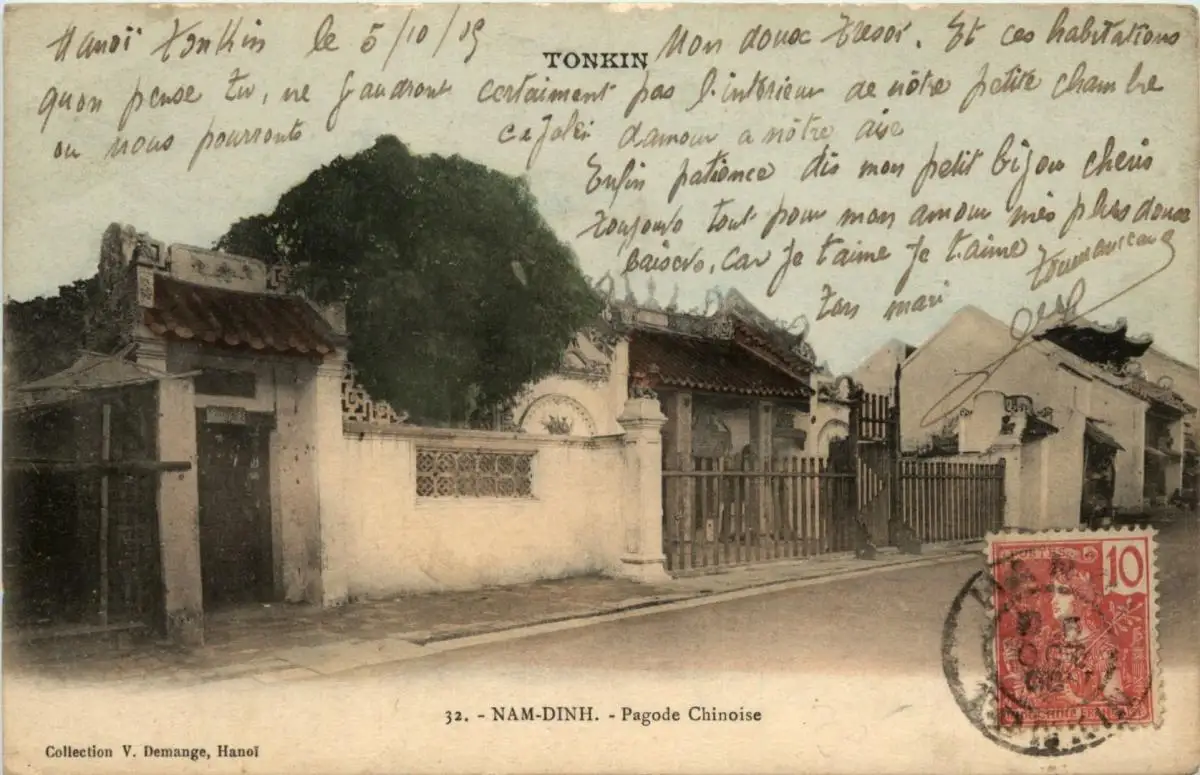 Hanoï Tonkin le 5/10/05
TONKIN
Mon doux tresor. Et ces habitations
quon pense tu, ne faudront certaiment pas l'interieur de nôtre petite chambre
ou nous pourronts ce joli damour a nôtre aise
Enfin patience dis mon petit bijou cheris
toujours tout pour mon amour mes plus doux
baisers, car je t'aime je t'aime
Ton mari
10
POSTES
INDOCHINE FRANÇAISE
HANOI
OCT
TONKIN
32. - NAM-DINH. - Pagode Chinoise
Collection V. Demange, Hanoï